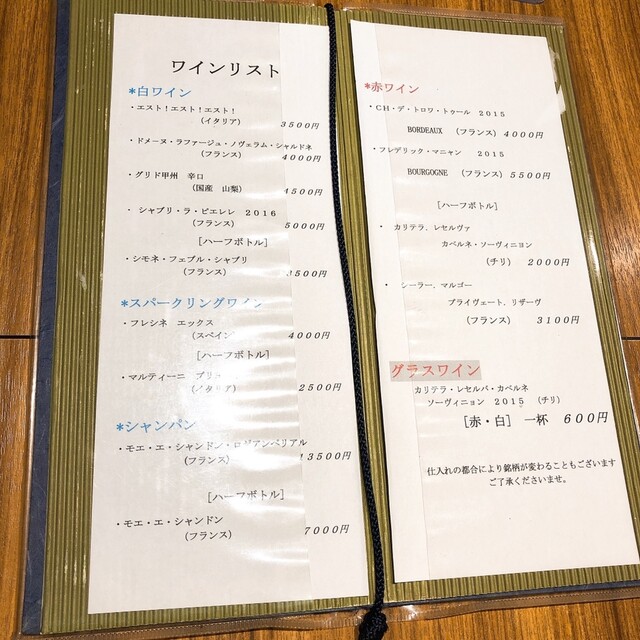 ワインリスト
*白ワイン
・エスト！エスト！エスト！
(イタリア) 3500円
・ドメーヌ・ラファージュ・ノヴェラム・シャルドネ
(フランス) 4000円
・グリド甲州 辛口
(国産 山梨) 4500円
・シャブリ・ラ・ピエレレ 2016
(フランス) 5000円
[ハーフボトル]
・シモネ・フェブル・シャブリ
(フランス) 3500円
*スパークリングワイン
・フレシネ エックス
(スペイン 4000円
[ハーフボトル]
・マルティーニ ブリュ
(イタリア) 2500円
*シャンパン
・モエ・エ・シャンドン・ロゼアンペリアル
(フランス) 13500円
[ハーフボトル]
・モエ・エ・シャンドン
(フランス) 7000円
*赤ワイン
・CH・デ・トロワ・トゥール 2015
BORDEAUX (フランス) 4000円
・フレデリック・マニャン 2015
BOURGOGNE (フランス) 5500円
[ハーフボトル]
・カリテラ、レセルヴァ
カベルネ・ソーヴィニョン
(チリ) 2000円
・シーラー、マルゴー
プライヴェート、リザーヴ
(フランス) 3100円
グラスワイン
カリテラ・レセルバ・カベルネ
ソーヴィニョン 2015 (チリ)
[赤・白] 一杯 600円
仕入れの都合により銘柄が変わることもございます
ご了承くださいませ。